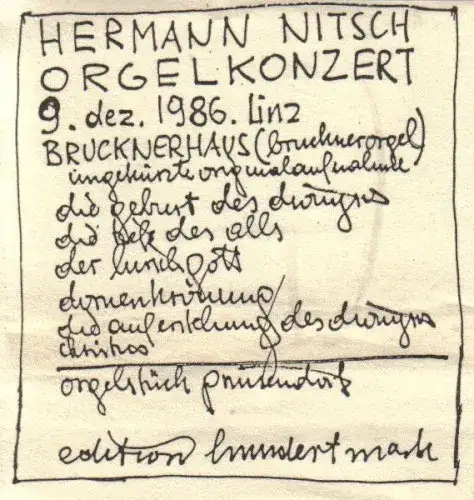 HERMANN NITSCH
ORGELKONZERT
9. dez. 1986. linz
BRUCKNERHAUS (brucknerorgel)
ungekürzte originalaufnahme
die geburt des dionysos
die tiefe des alls
der hirschgott
dornenkrönung
die auferstehung des dionysos
christos
orgelstück prinzendorf
edition hundertmark